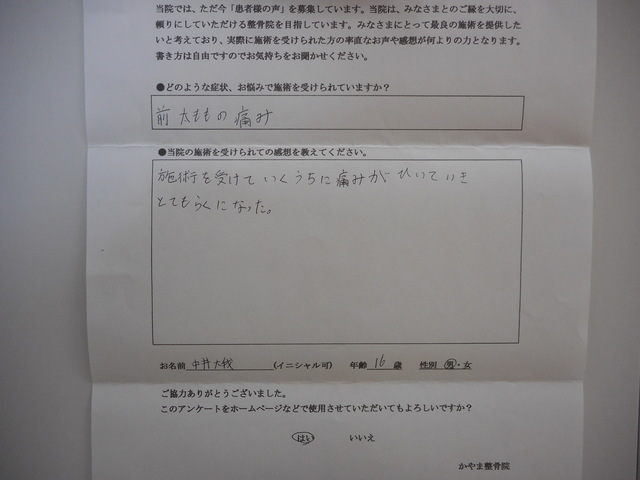 当院では、ただ今「患者様の声」を募集しています。当院は、みなさまとのご縁を大切に、
頼りにしていただける整骨院を目指しています。みなさまにとって最良の施術を提供した
いと考えており、実際に施術を受けられた方の率直なお声や感想が何よりの力となります。
書き方は自由ですのでお気持ちをお聞かせください。
●どのような症状、お悩みで施術を受けられていますか？
前太ももの痛み
●当院の施術を受けられての感想を教えてください。
施術を受けていくうちに痛みがひいていき
とてもらくになった。
お名前 中井大我 (イニシャル可) 年齢 16 歳 性別 男・女
ご協力ありがとうございました。
このアンケートをホームページなどで使用させていただいてもよろしいですか？
はい いいえ
かやま整骨院